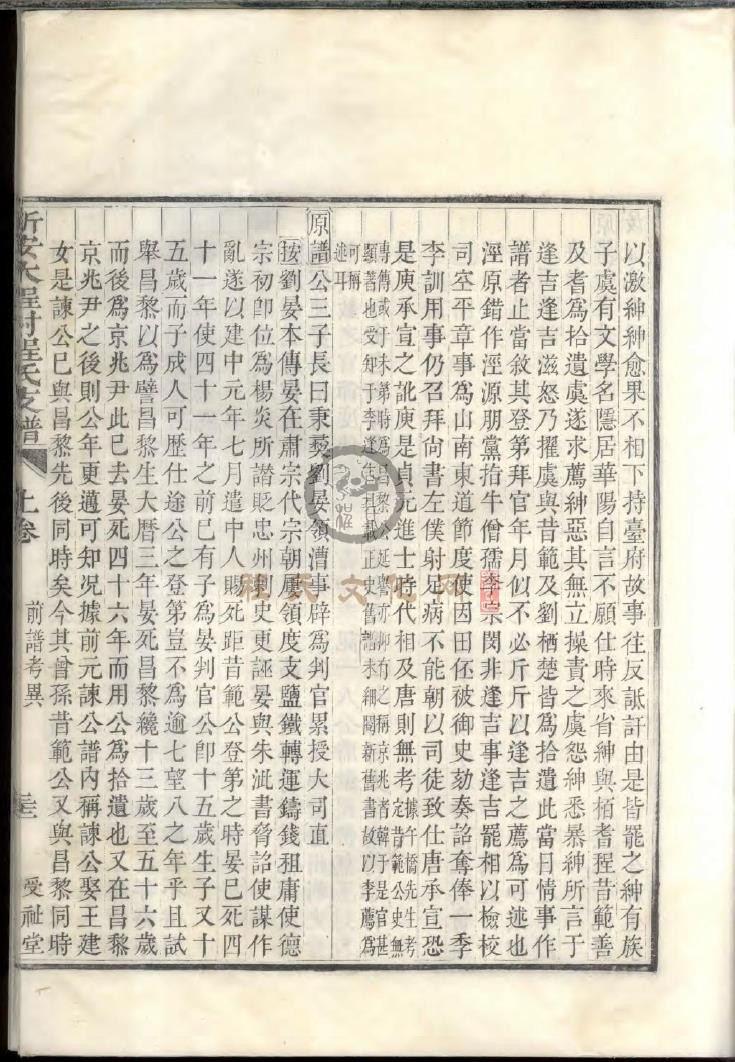 以激紳紳愈果不相下持臺府故事往反詆訐由是皆罷之紳有族
子虞有文學名隱居華陽自言不願仕時來省紳與栢耆程昔範善
及耆為拾遺虞遂求薦紳惡其無立操責之虞怨紳悉暴紳所言于
逢吉逢吉滋怒乃擢虞與昔範及劉栖楚皆為拾遺此當日情事作
譜者止當敘其登第拜官年月似不必斤斤以逢吉之薦為可述也
涇原錯作涇源朋黨指牛僧孺李宗閔非逢吉事逢吉罷相以檢校
司空平章事為山南東道節度使因田伾被御史劾奏詔奪俸一季
李訓用事仍召拜尚書左僕射足病不能朝以司徒致仕唐承宣恐
是庾承宣之訛庾是貞元進士時代相及唐則無考據午橋先生考
定昔範公史無
專傳或于未第時為昌黎延譽亦抑有之稱京兆者韓于是官甚
顯著也受知于李逢吉刊載正史舊譜未細閱新舊書故以李薦為
可稱
述耳
原譜公三子長曰秉彝劉晏領漕事辟為判官累授大司直
按劉晏本傳晏在肅宗代宗朝屢領度支鹽鐵轉運鑄錢租庸使德
宗初卽位為楊炎所譖貶忠州刺史更誣晏與朱泚書脅詔使謀作
亂遂以建中元年七月遣中人賜死距昔範公登第之時晏已死四
十一年使四十一年之前已有子為晏判官公卽十五歲生子又十
五歲而子成人可歷仕途公之登第豈不為逾七望八之年乎且試
舉昌黎以為譬昌黎生大曆三年晏死昌黎纔十三歲至五十六歲
而後為京兆尹此已去晏死四十六年而用公為拾遺也又在昌黎
京兆尹之後則公年更邁可知况據前元諫公譜內稱諫公娶王建
女是諫公已與昌黎先後同時矣今其曾孫昔範公又與昌黎同時
新安大程村程氏支譜
上卷
前譜考異
受祉堂
程氏文化网